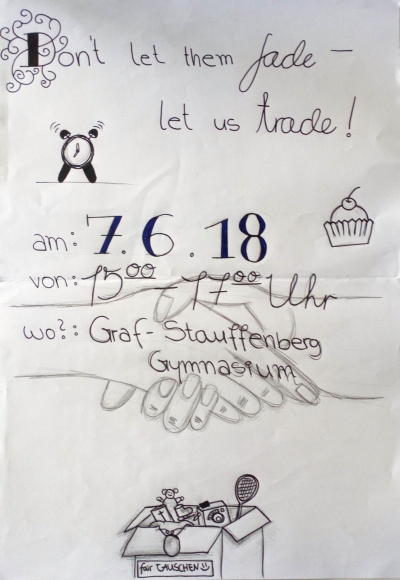 Don't let them fade –
let us trade!
am: 7.6.18
von: 15⁰⁰ – 17⁰⁰ Uhr
wo?: Graf-Stauffenberg
Gymnasium
fair TAUSCHEN